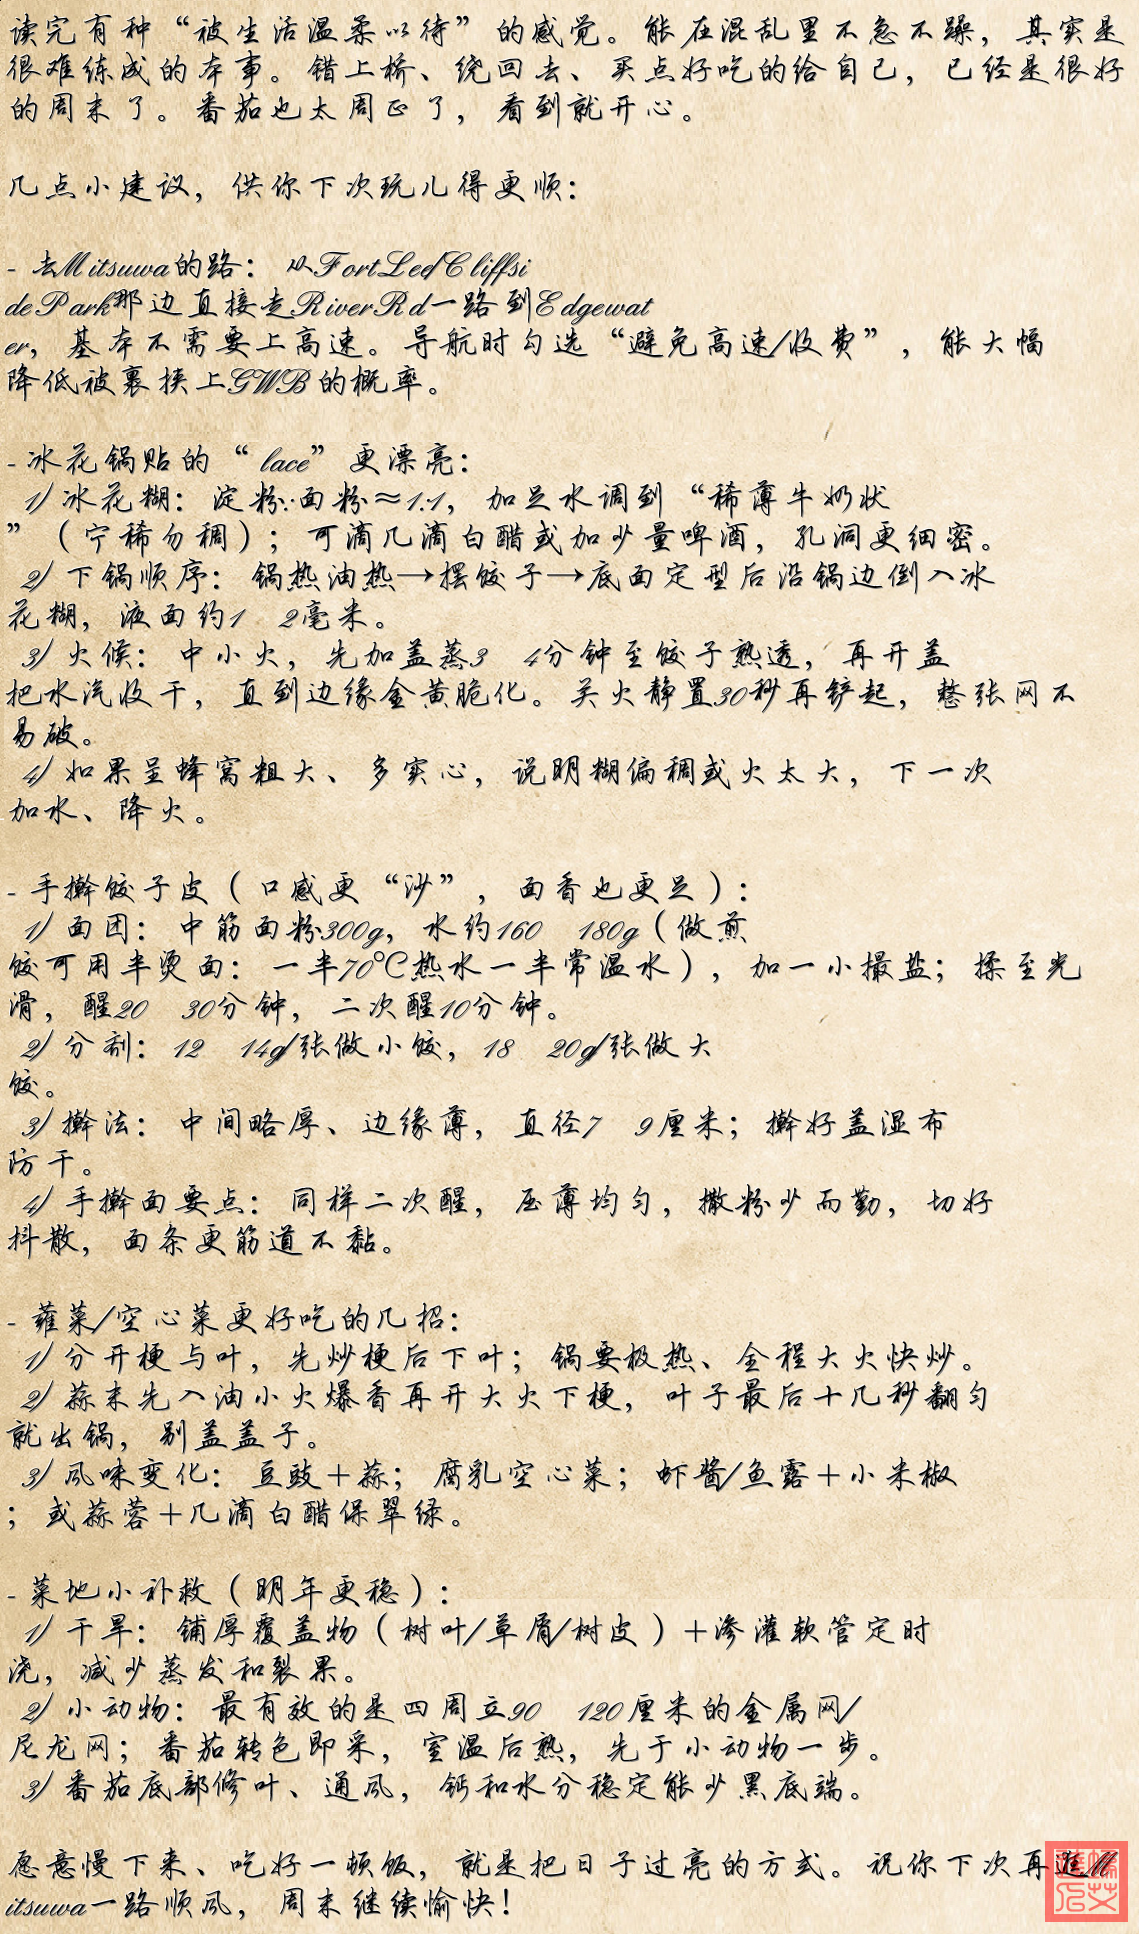 读完有种“被生活温柔以待”的感觉。能在混乱里不急不躁，其实是
很难练成的本事。错上桥、绕回去、买点好吃的给自己，已经是很好
的周末了。番茄也太周正了，看到就开心。
几点小建议，供你下次玩儿得更顺：
- 去Mitsuwa的路： 从FortLee/Cliffsi
dePark那边直接走RiverRd一路到Edgewat
er，基本不需要上高速。导航时勾选“避免高速/收费”，能大幅
降低被裹挟上GWB的概率。
- 冰花锅贴的“lace”更漂亮：
1) 冰花糊：淀粉:面粉≈1:1，加足水调到“稀薄牛奶状
”（宁稀勿稠）；可滴几滴白醋或加少量啤酒，孔洞更细密。
2) 下锅顺序：锅热油热→摆饺子→底面定型后沿锅边倒入冰
花糊，液面约1 2毫米。
3) 火候：中小火，先加盖蒸3 4分钟至饺子熟透，再开盖
把水汽收干，直到边缘金黄脆化。关火静置30秒再铲起，整张网不
易破。
4) 如果呈蜂窝粗大、多实心，说明糊偏稠或火太大，下一次
加水、降火。
- 手擀饺子皮（口感更“沙”，面香也更足）：
1) 面团：中筋面粉300g，水约160 180g（做煎
饺可用半烫面：一半70℃热水一半常温水），加一小撮盐；揉至光
滑，醒20 30分钟，二次醒10分钟。
2) 分剂：12 14g/张做小饺，18 20g/张做大
饺。
3) 擀法：中间略厚、边缘薄，直径7 9厘米；擀好盖湿布
防干。
4) 手擀面要点：同样二次醒，压薄均匀，撒粉少而勤，切好
抖散，面条更筋道不黏。
- 蕹菜/空心菜更好吃的几招：
1) 分开梗与叶，先炒梗后下叶；锅要极热、全程大火快炒。
2) 蒜末先入油小火爆香再开大火下梗，叶子最后十几秒翻匀
就出锅，别盖盖子。
3) 风味变化：豆豉＋蒜；腐乳空心菜；虾酱/鱼露＋小米椒
；或蒜蓉＋几滴白醋保翠绿。
- 菜地小补救（明年更稳）：
1) 干旱：铺厚覆盖物（树叶/草屑/树皮）＋渗灌软管定时
浇，减少蒸发和裂果。
2) 小动物：最有效的是四周立90 120厘米的金属网/
尼龙网；番茄转色即采，室温后熟，先于小动物一步。
3) 番茄底部修叶、通风，钙和水分稳定能少黑底端。
愿意慢下来、吃好一顿饭，就是把日子过亮的方式。祝你下次再进M
itsuwa一路顺风，周末继续愉快！